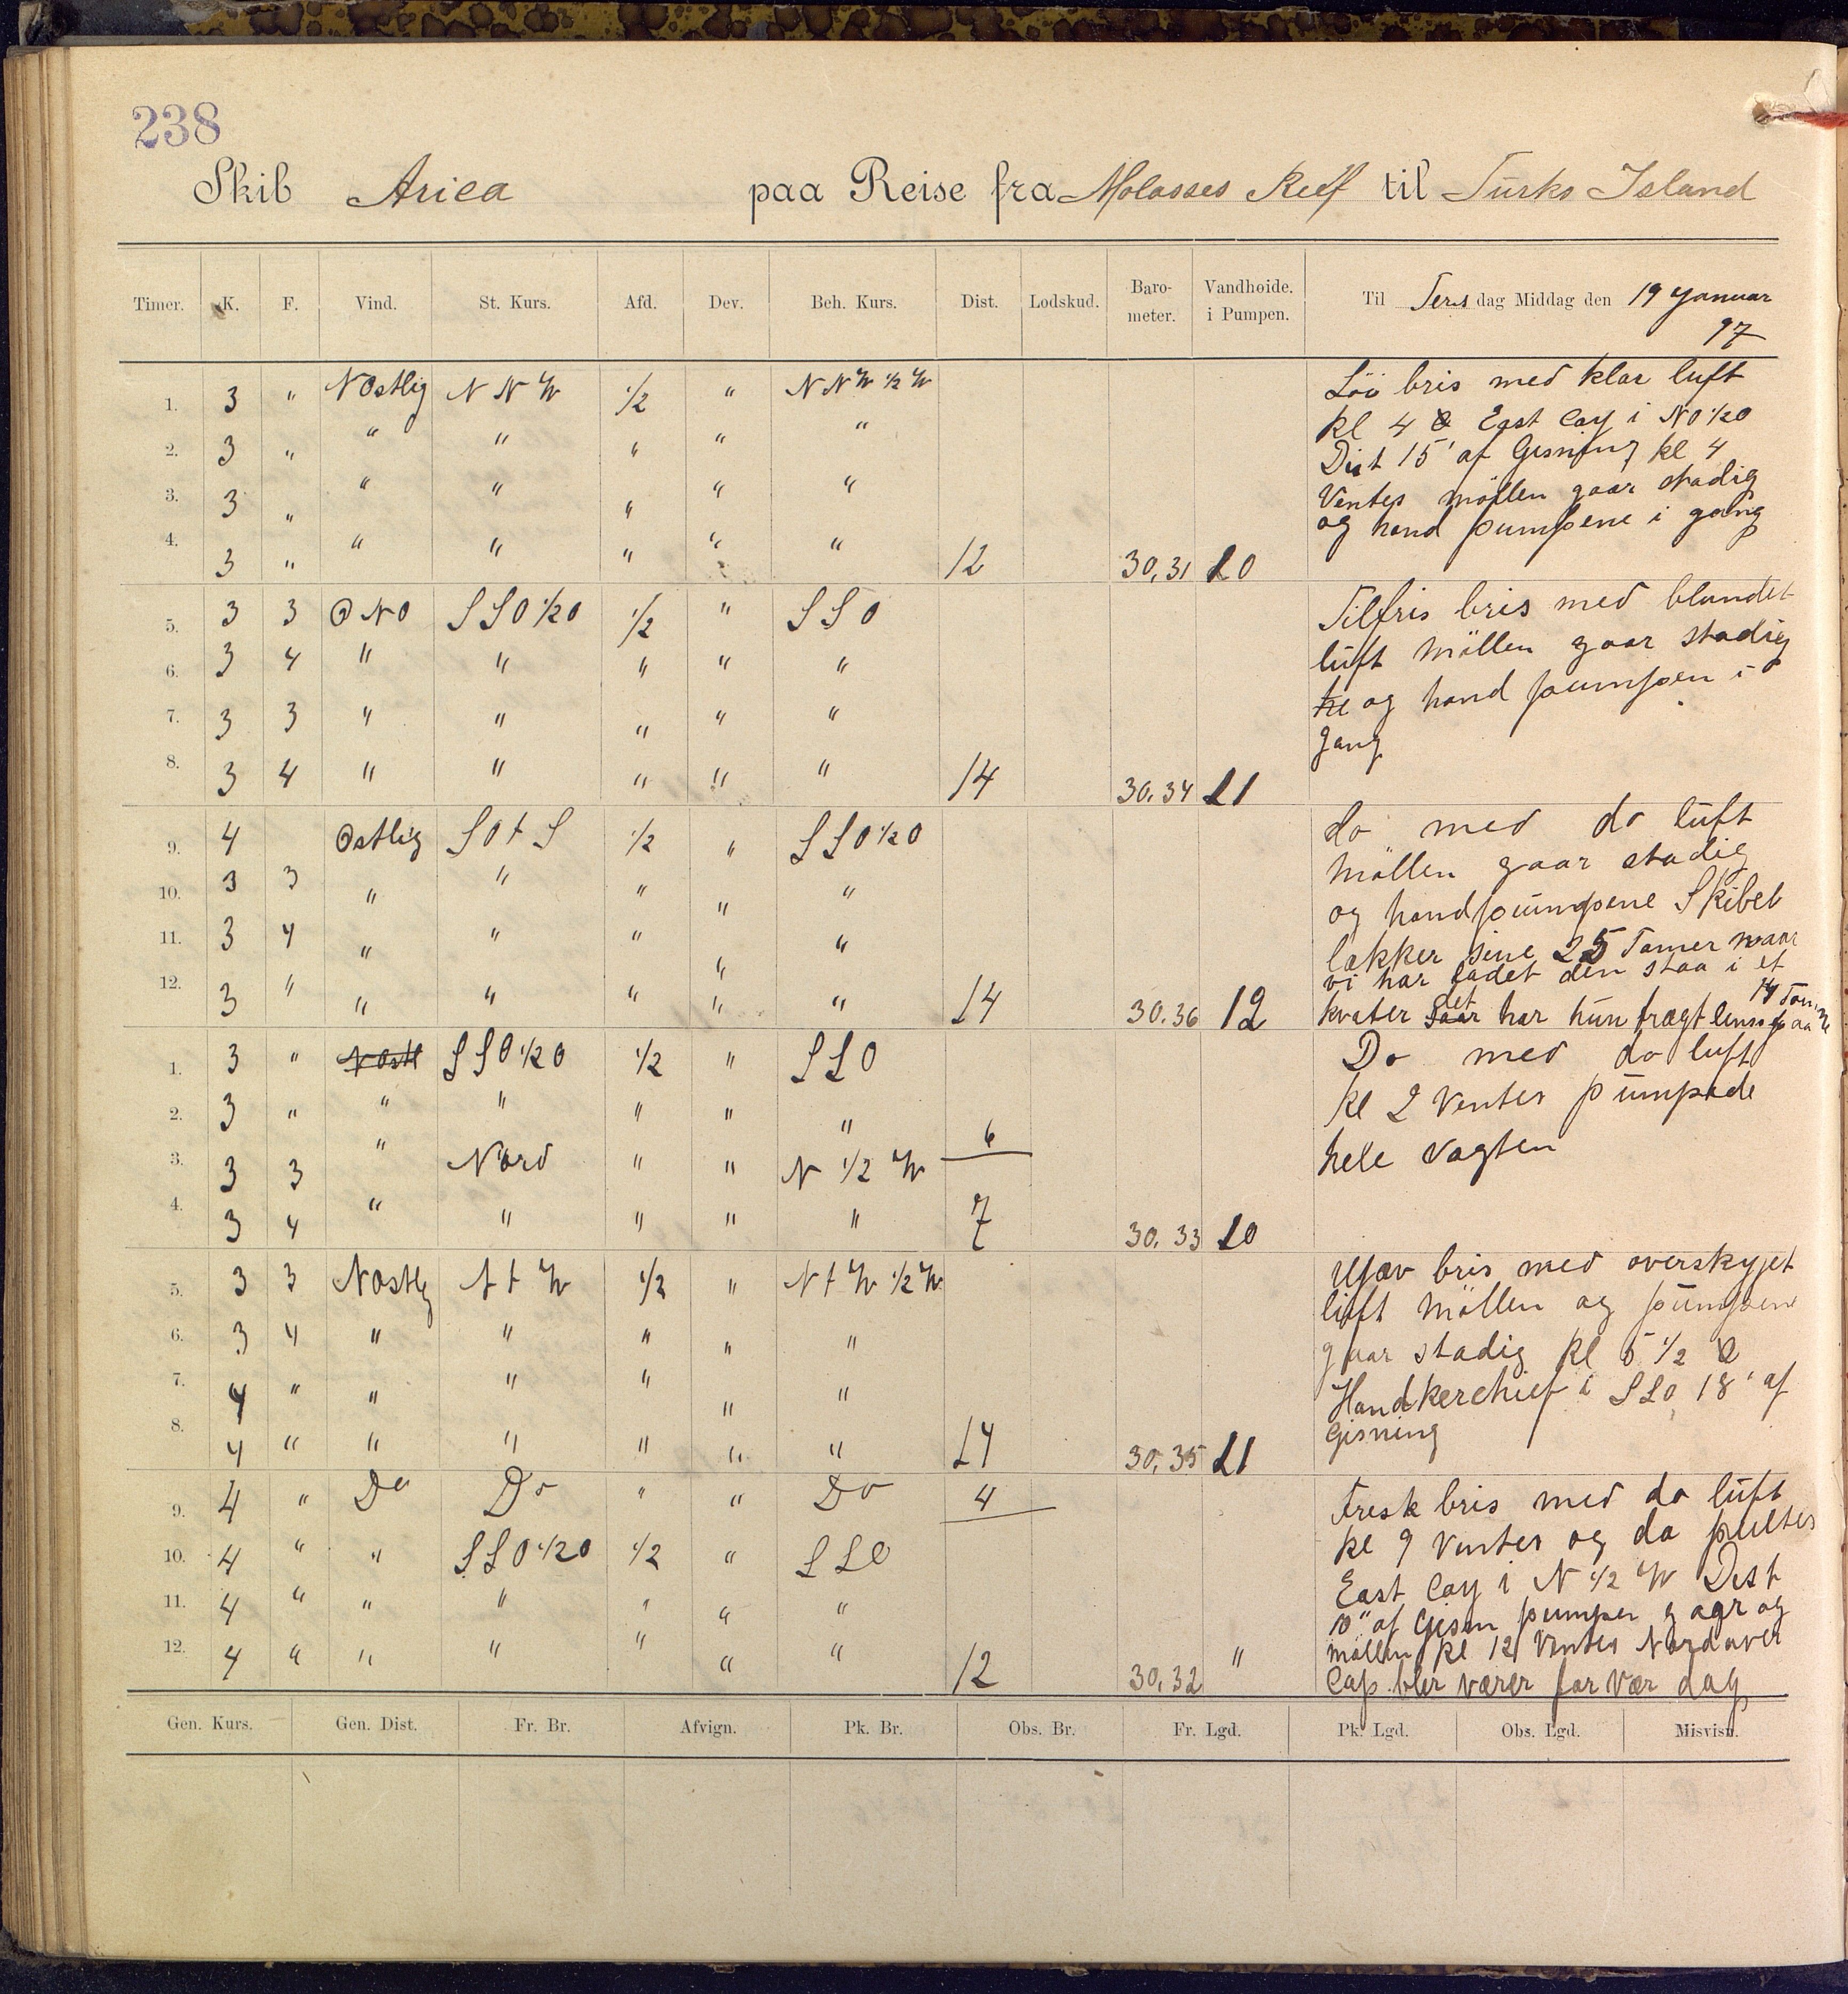 238
Skib Arica paa Reise fra Molasses Reef til Turks Island
Timer. K. F. Vind. St. Kurs. Afd. Dev. Beh. Kurs. Dist. Lodskud. Baro-meter. Vandhøide. i Pumpen. Til Tirsdag Middag den 19 Januar 97
1. 3 " NOstlig N N W 1/2 " N N W 1/2 W Löi bris med klar luft
2. 3 " " " " " " kl 4 East Cay i NO 1/2 O
3. 3 " " " " " " Dist 15' af Gisning kl 4
Ventes möllen gaar stadig
og hand pumpene i gang
4. 3 " " " " " " 12 30,31 10
5. 3 3 ONO SSO 1/2 O 1/2 " SSO Tilfris bris med blandet
6. 3 4 " " " " " luft möllen gaar stadig
7. 3 3 " " " " " kl og hand pumpen i
gang
8. 3 4 " " " " " 14 30.34 11
9. 4 Ostlig SO t S 1/2 " SSO 1/2 O do med do luft
10. 3 3 " " " " " möllen gaar stadig
og handpumpene Skibet
11. 3 4 " " " " " lækker sine 25 Tomer naar
vi har ladet den staa i et
12. 3 " " " " " " 14 30.36 12 kvater det har hun trægt lens paa 14 Tomme
1. 3 " NOstl SSO 1/2 O 1/2 " SSO Do med do luft
2. 3 " " " " " " 6 kl 2 Ventes pumpede
3. 3 3 " Nord " " N 1/2 W hele vagten
4. 3 4 " " " " " 7 30.33 10
5. 3 3 NOstlig N t W 1/2 " N t W 1/2 W Ujæv bris med overskyjet
6. 3 4 " " " " " luft Möllen og pumpene
gaar stadig kl 5 1/2
7. 4 " " " " " " Handkerchief i SSO 18' af
8. 4 " " " " " " 14 30,35 11 Gisning
9. 4 " Do Do " " Do 4 Fresk bris med do luft
10. 4 " " SSO 1/2 O 1/2 " SSO kl 9 Ventes og da peiltes
East Cay i N 1/2 W Dist
11. 4 " " " " " " 10" af Gisn pumper gaar og
möllen kl 12 Ventes Nordover
12. 4 " " " " " " 12 30,32 " Cap. blir værer for vær dag
Gen. Kurs. Gen. Dist. Fr. Br. Afvign. Pk. Br. Obs. Br. Fr. Lgd. Pk. Lgd. Obs. Lgd. Misvisn.